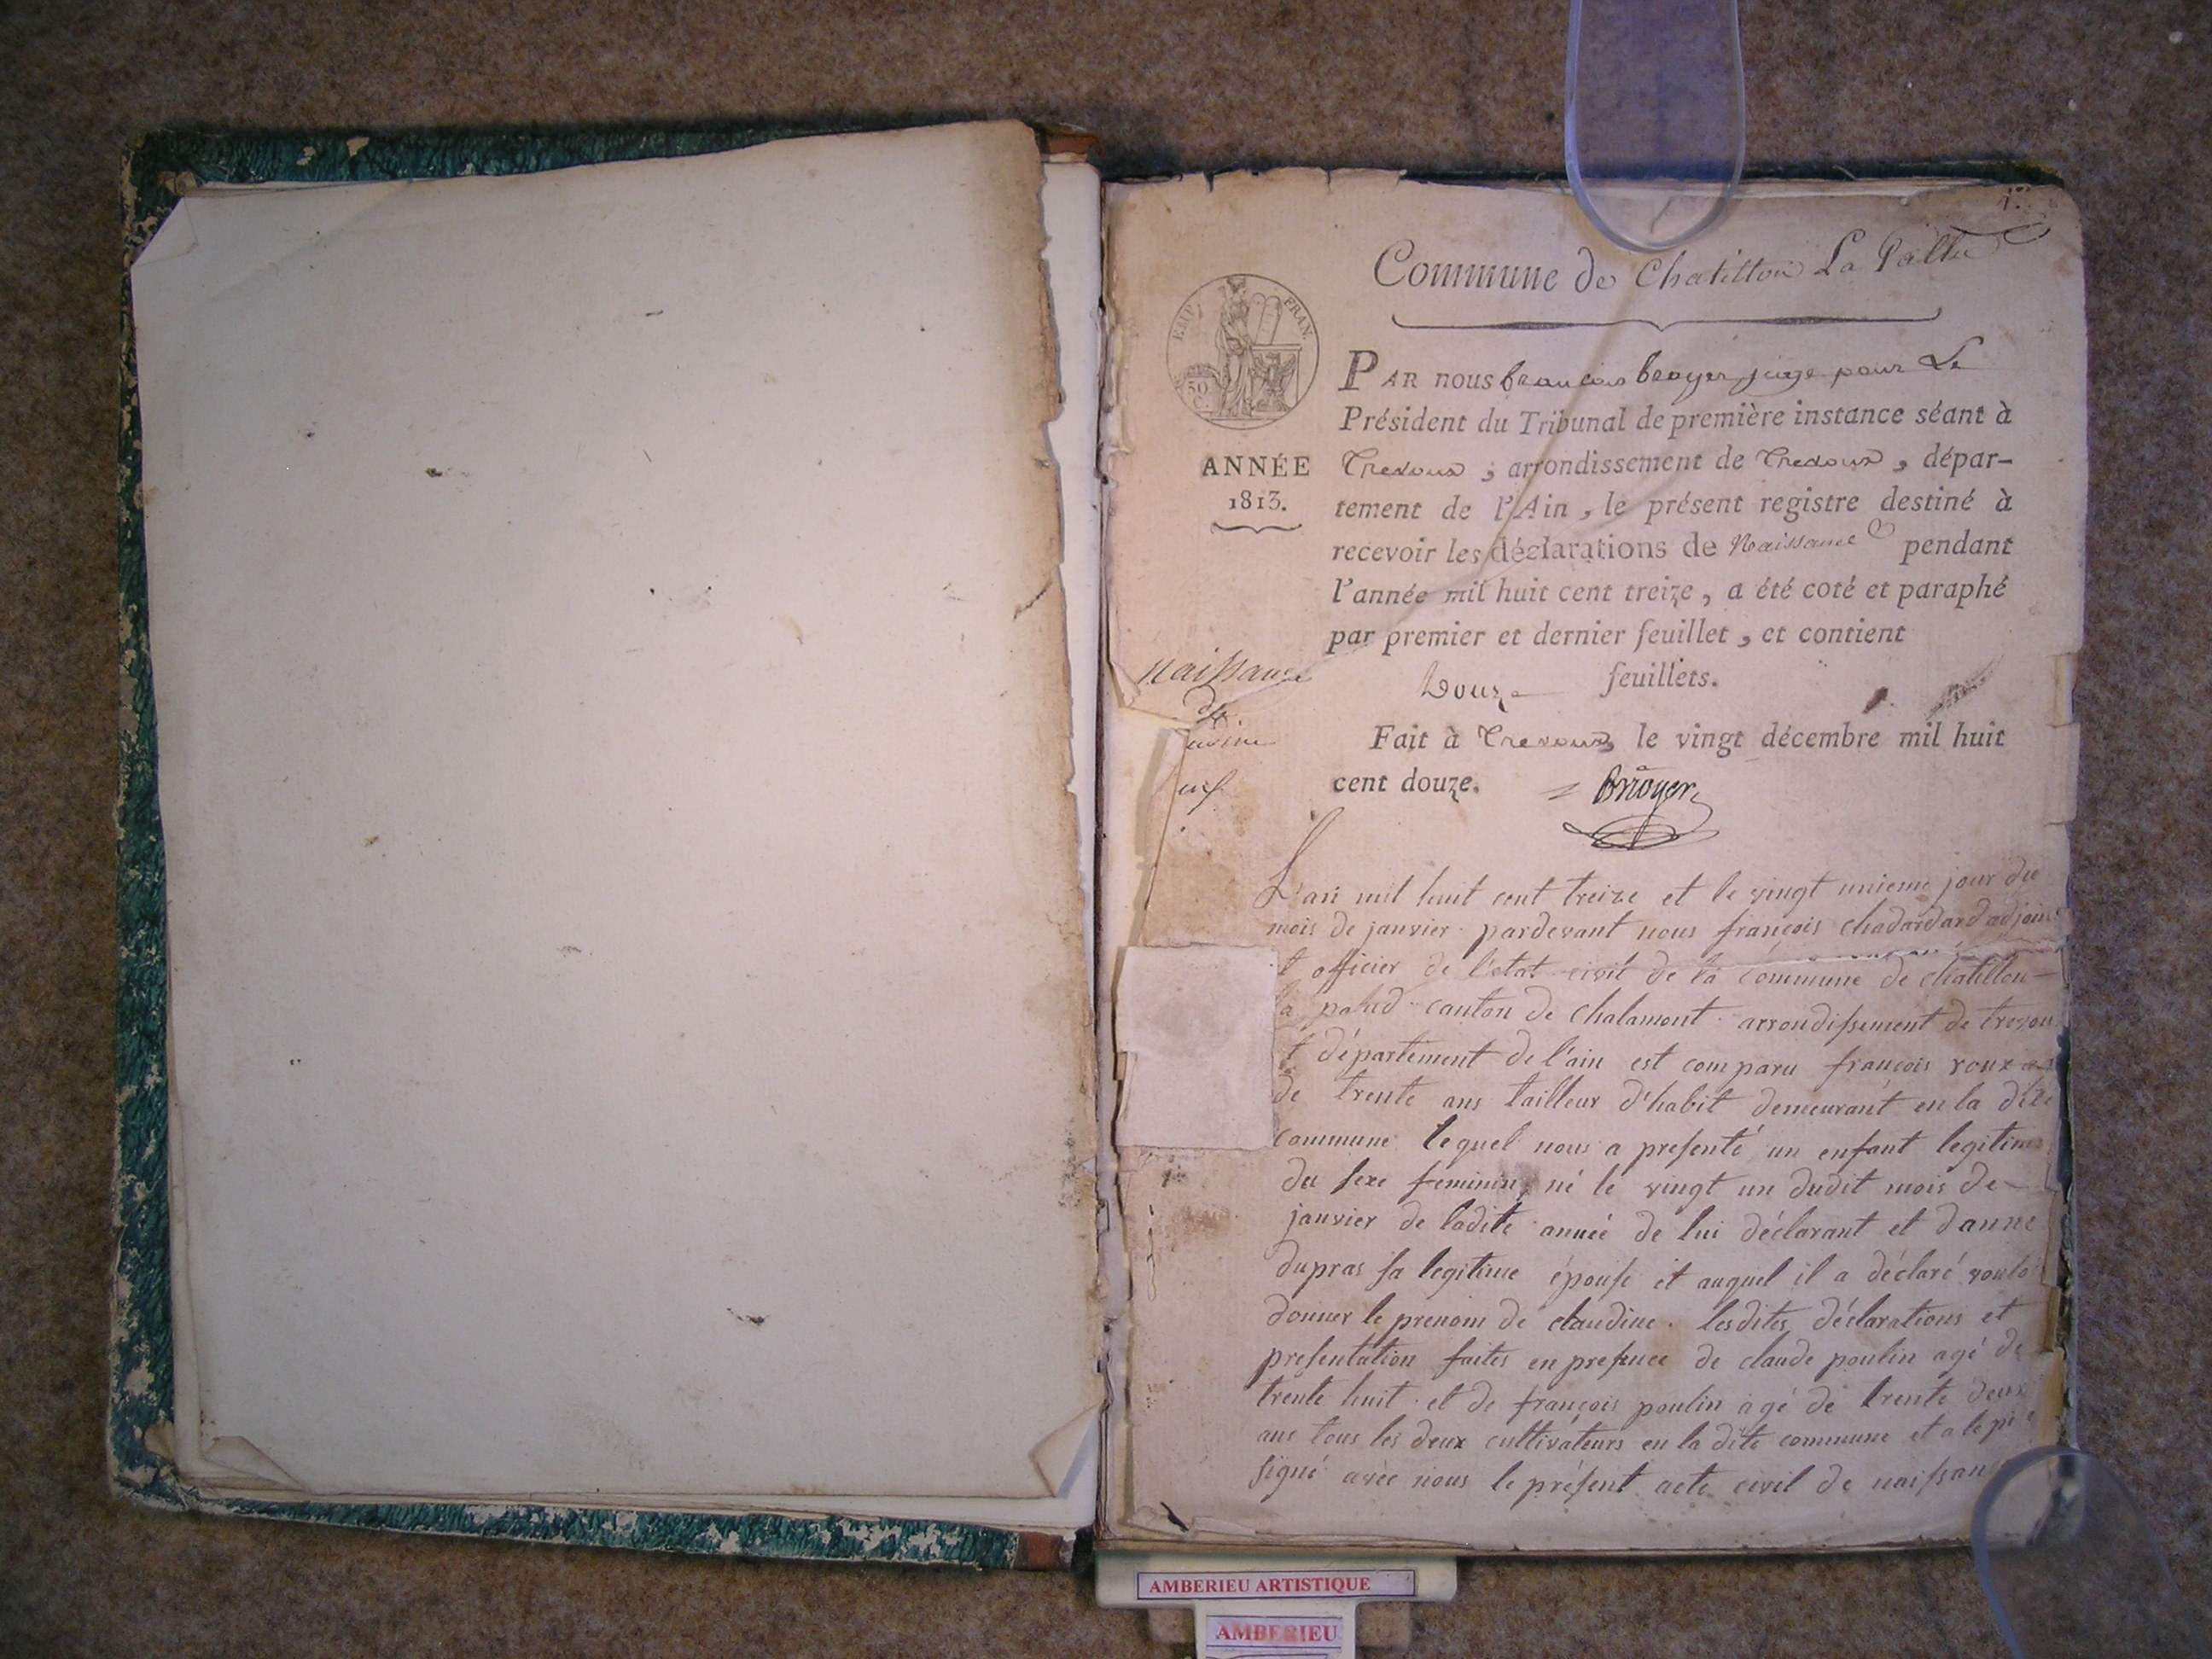 1.er
Commune de Chatillon La Pallu
EMP. FRAN.
50 C.
PAR nous françois bruyer juge pour Le
Président du Tribunal de première instance séant à
ANNÉE
1813.
Trevoux ; arrondissement de Trevoux, dépar-
tement de l'Ain, le présent registre destiné à
recevoir les déclarations de Naissance pendant
l'année mil huit cent treize, a été coté et paraphé
par premier et dernier feuillet, et contient
Douze feuillets.
naissance
de
Fait à Trevoux, le vingt décembre mil huit
cent douze.
Bruyer
L'an mil huit cent treize et le vingt unieme jour du
mois de janvier pardevant nous françois chadardard adjoint
officier de l'etat civil de la commune de chatillon-
la palud canton de chalamont arrondissement de trevou
département de l'ain est comparu françois roux
de trente ans tailleur d'habit demeurant en la dite
commune lequel nous a presenté un enfant legitime
du sexe feminin, né le vingt un dudit mois de
janvier de ladite année de lui déclarant et d'anne
dupras sa legitime épouse et auquel il a déclaré voulo
donner le prenom de claudine. lesdites déclarations et
presentation faites en presence de claude poulin agé de
trente huit et de françois poulin agé de trente deux
ans tous les deux cultivateurs en la dite commune et a le pe
signé avec nous le présent acte civil de naissan
AMBERIEU ARTISTIQUE
AMBERIEU